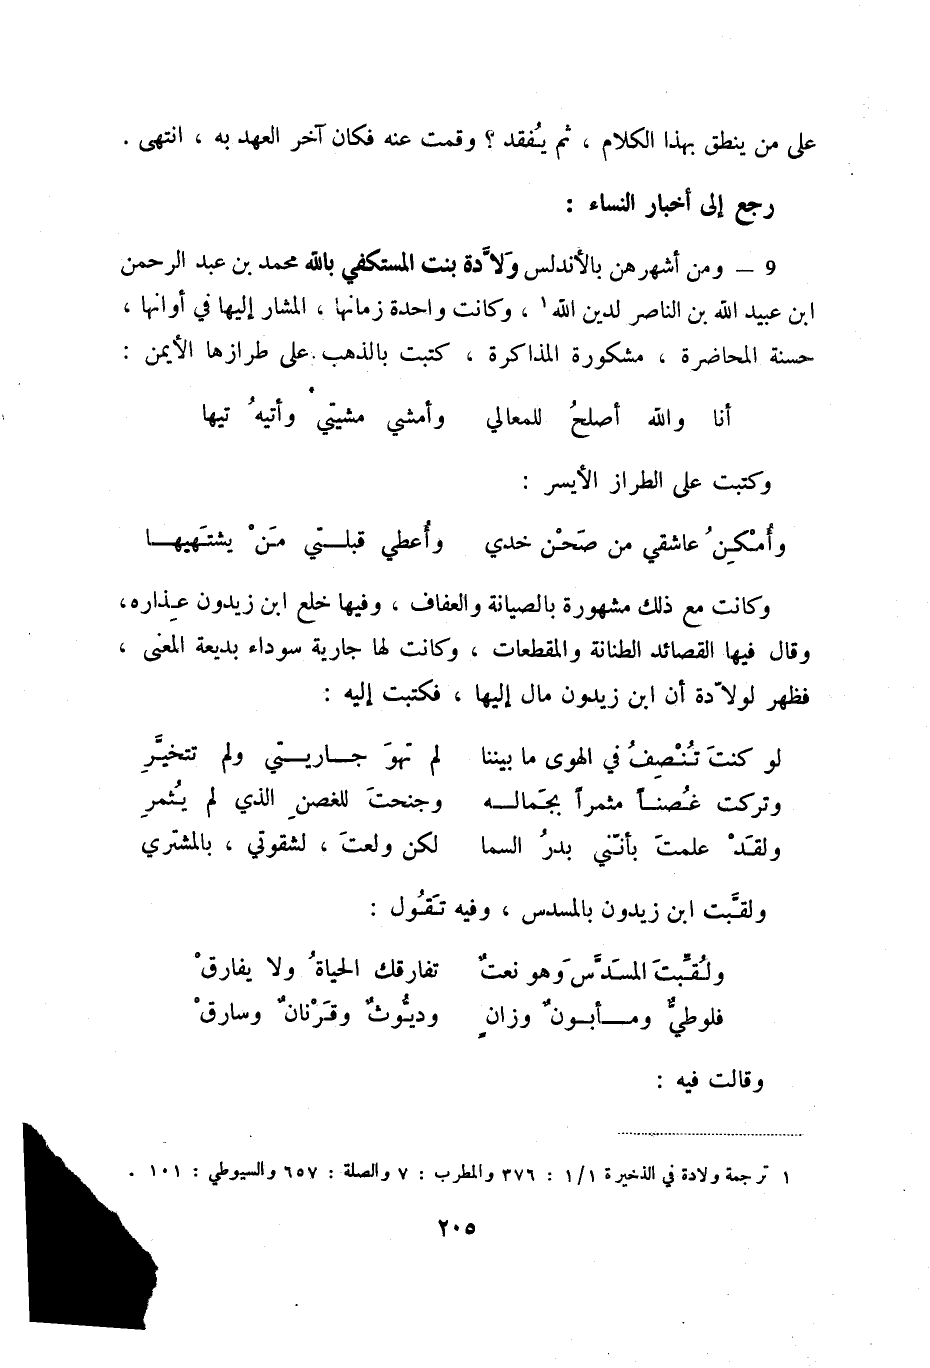 على من ينطق بهذا الكلام ، ثم يُفقد ؟ وقمت عنه فكان آخر العهد به ، انتهى .
رجع إلى أخبار النساء :
9 – ومن أشهرهن بالأندلس وَلاَّدة بنت المستكفي بالله محمد بن عبد الرحمن
ابن عبيد الله بن الناصر لدين الله ١ ، وكانت واحدة زمانها ، المشار إليها في أوانها ،
حسنة المحاضرة ، مشكورة المذاكرة ، كتبت بالذهب على طرازها الأيمن :
أنا والله أصلحُ للمعالي وأمشي مشيتي وأتيهُ تيها
وكتبت على الطراز الأيسر :
وأُمْكِنُ عاشقي من صَحْن خدي وأُعطي قبلتي مَنْ يشتَهيها
وكانت مع ذلك مشهورة بالصيانة والعفاف ، وفيها خلع ابن زيدون عِذاره،
وقال فيها القصائد الطنانة والمقطعات ، وكانت لها جارية سوداء بديعة المعنى ،
فظهر لولاّدة أن ابن زيدون مال إليها ، فكتبت إليه :
لو كنتَ تُنْصِفُ في الهوى ما بيننا لم تهوَ جاريتي ولم تتخيَّرِ
وتركت غُصناً مثمراً بجَماله وجنحتَ للغصنِ الذي لم يُثمرِ
ولقَدْ علمتَ بأنّني بدرُ السما لكن ولعتَ ، لشقوتي ، بالمشتري
ولقَّبت ابن زيدون بالمسدس ، وفيه تَقُول :
ولُقِّبتَ المسَدَّسَ وهو نعتٌ تفارقك الحياةُ ولا يفارقْ
فلوطيٌّ ومأبونٌ وزانٍ وديُّوثٌ وقَرْنانٌ وسارقْ
وقالت فيه :
١ ترجمة ولادة في الذخيرة ١/١ : ٣٧٦ والمطرب : ٧ والصلة : ٦٥٧ والسيوطي : ١٠١ .
٢٠٥